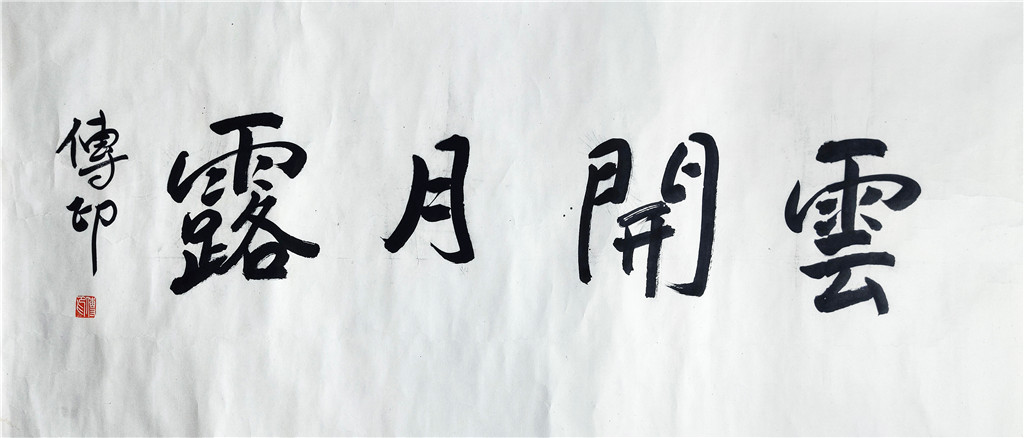 雲開月露
傳印